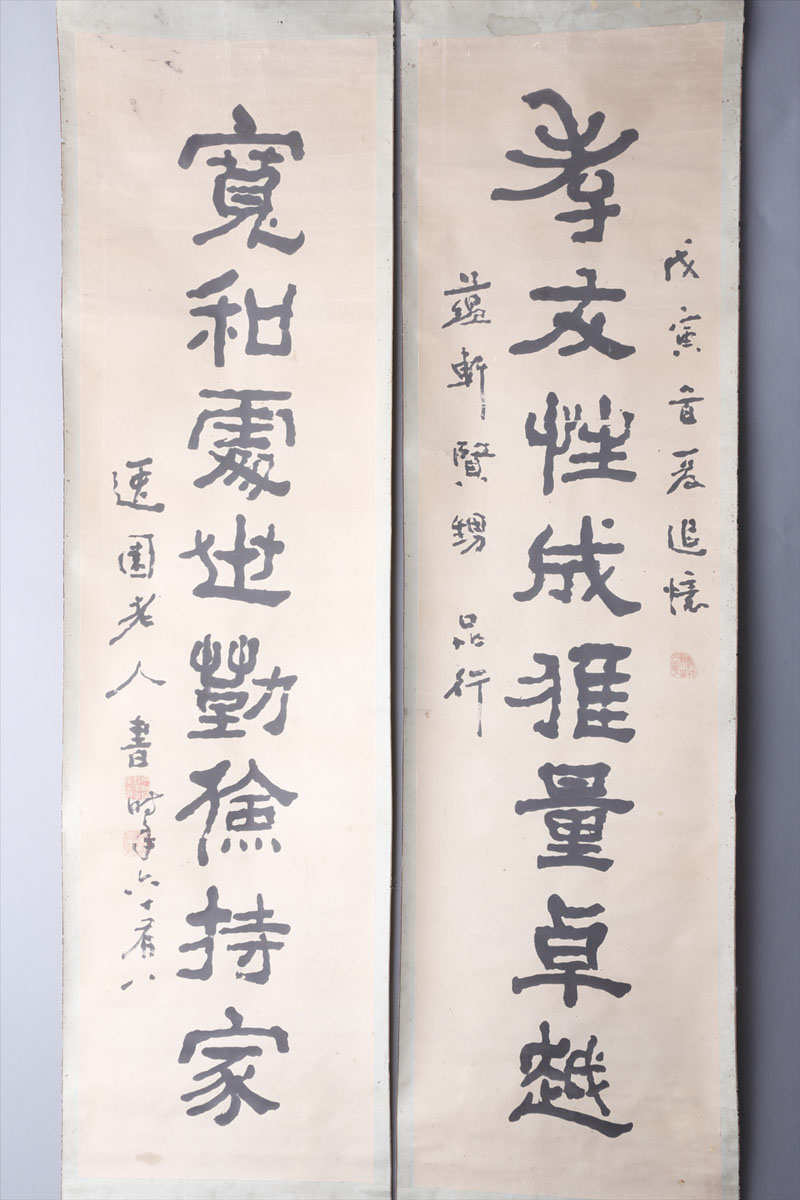 戊寅首夏追憶
孝友性成雅量卓越
蘊軒賢甥 品行
寬和處世勤儉持家
園老人書時年六十有八